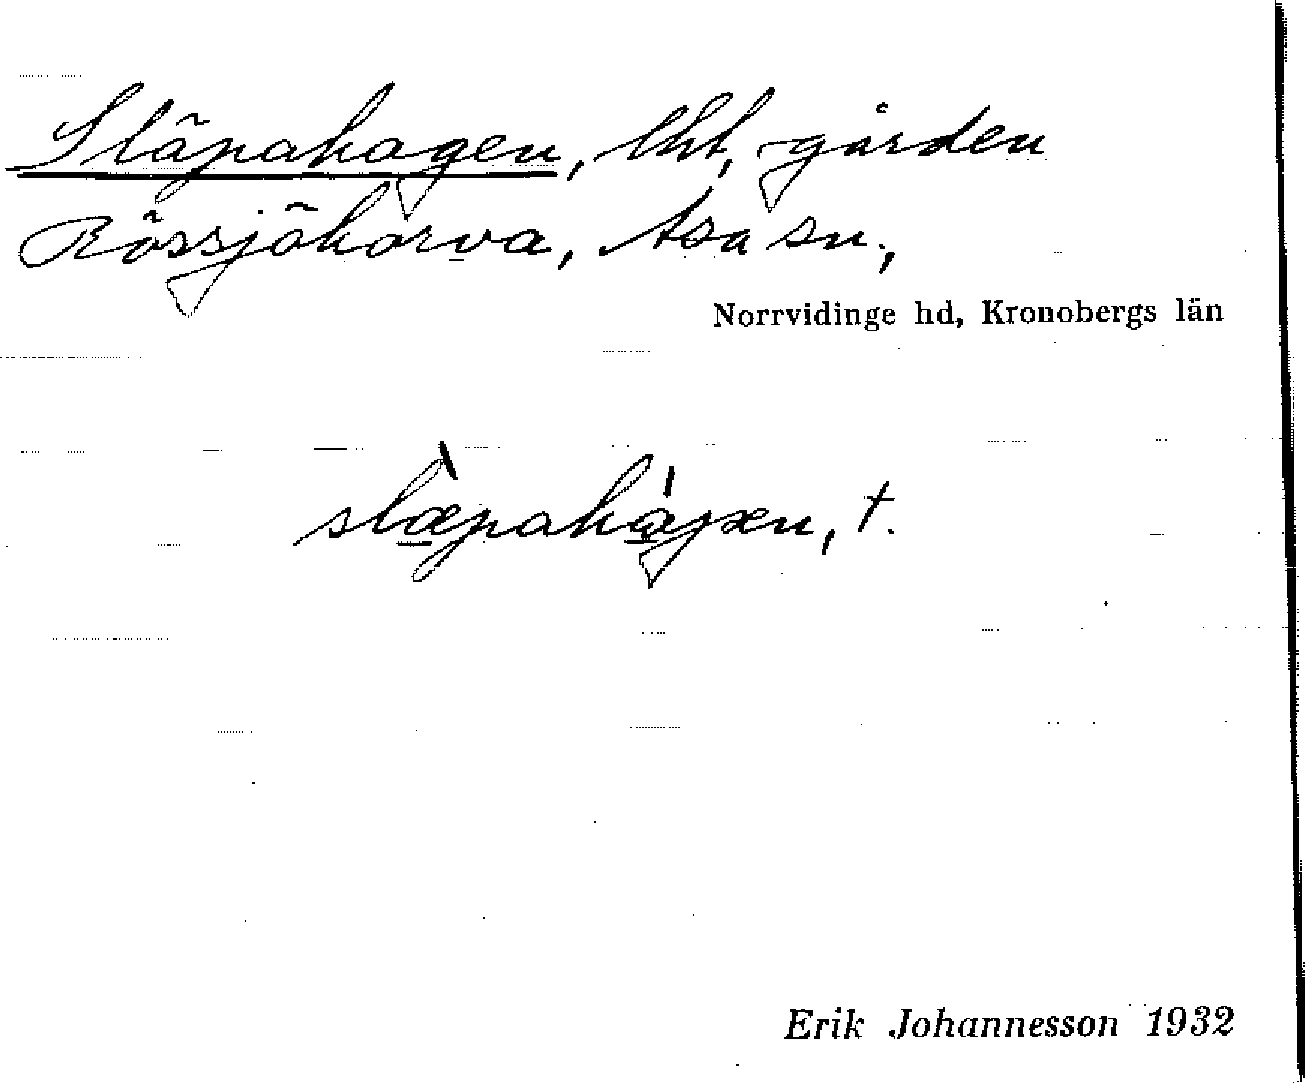 Släpahagen, lht, gården
Rössjöhorva, Asa sn.,
Norrvidinge hd, Kronobergs län
slæpahagen, t.
Erik Johannesson 1932